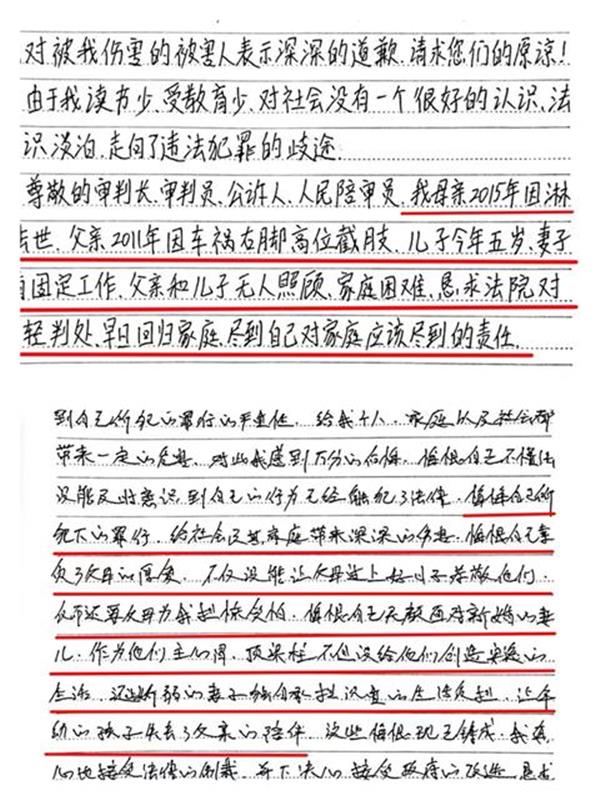 对被我伤害的被害人表示深深的道歉.请求您们的原谅!
由于我读书少、受教育少、对社会没有一个很好的认识、法
识淡泊、走向了违法犯罪的歧途.
尊敬的审判长、审判员、公诉人、人民陪审员、我母亲2015年因淋
去世、父亲2011年因车祸右脚高位截肢、儿子今年五岁、妻子
固定工作、父亲和儿子无人照顾、家庭困难、恳求法院对
轻判处、早日回归家庭、尽到自己对家庭应该尽到的责任.
到自己所犯的罪行的严重性、给我个人、家庭以及社会都
带来一定的危害、对此我感到万分的后悔、悔恨自己不懂法
没能及时意识到自己的行为已经触犯了法律、悔恨自己所
犯下的罪行、给社会及其家庭带来深深的伤害、悔恨自己辜
负了父母的厚爱、不仅没能让父母过上好日子孝敬他们、
反而还要父母为我担惊受怕、悔恨自己无颜面对新婚的妻
儿、作为他们主心骨、顶梁柱不但没给他们创造安逸的
生活、还让娇弱的妻子独自承担沉重的生活负担、让年
幼的孩子失去了父亲的陪伴、这些悔恨现已铸成、我真
心地接受法律的制裁、并下决心接受政府的改造、恳求